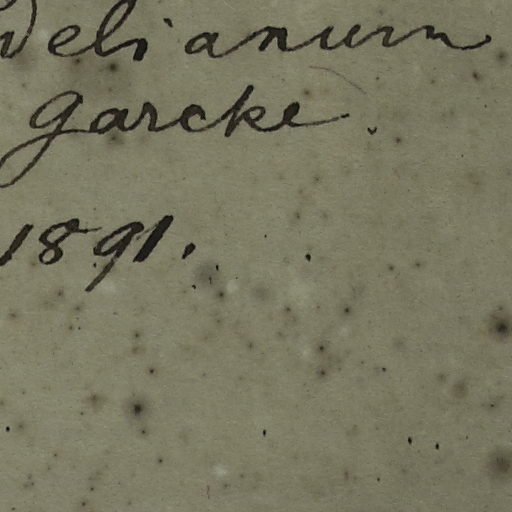 delianum
Garcke.
1891.